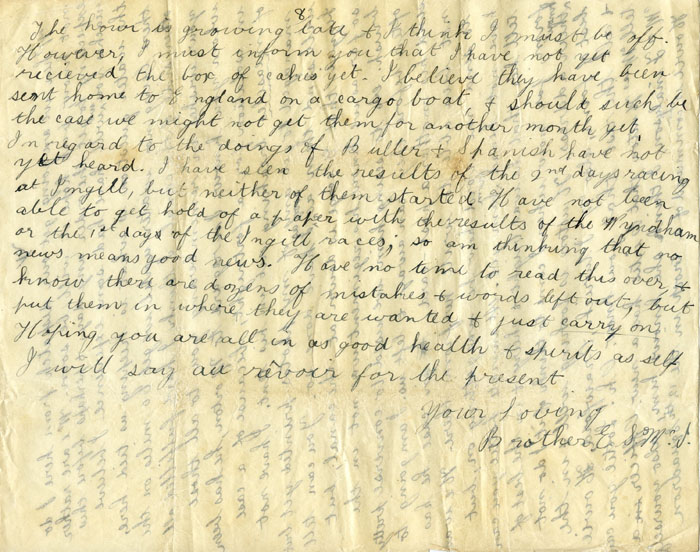 8
The hour is growing late & I think I must be off.
However, I must inform you that I have not yet
recieved the box of cakes yet. I believe they have been
sent home to England on a cargo boat & should such be
the case we might not get them for another month yet.
In regard to the doings of Buller & Spanish have not
yet heard. I have seen the results of the 2nd days racing
at Ingill, but neither of them started. Have not been
able to get hold of a paper with the results of the Wyndham
or the 1st days of the Ingill races, so am thinking that no
news means good news. Have no time to read this over &
know there are dozens of mistakes & words left out, but
put them in where they are wanted & just carry on.
Hoping you are all in as good health & spirits as self
I will say au revoir for the present
Your Loving
Brother